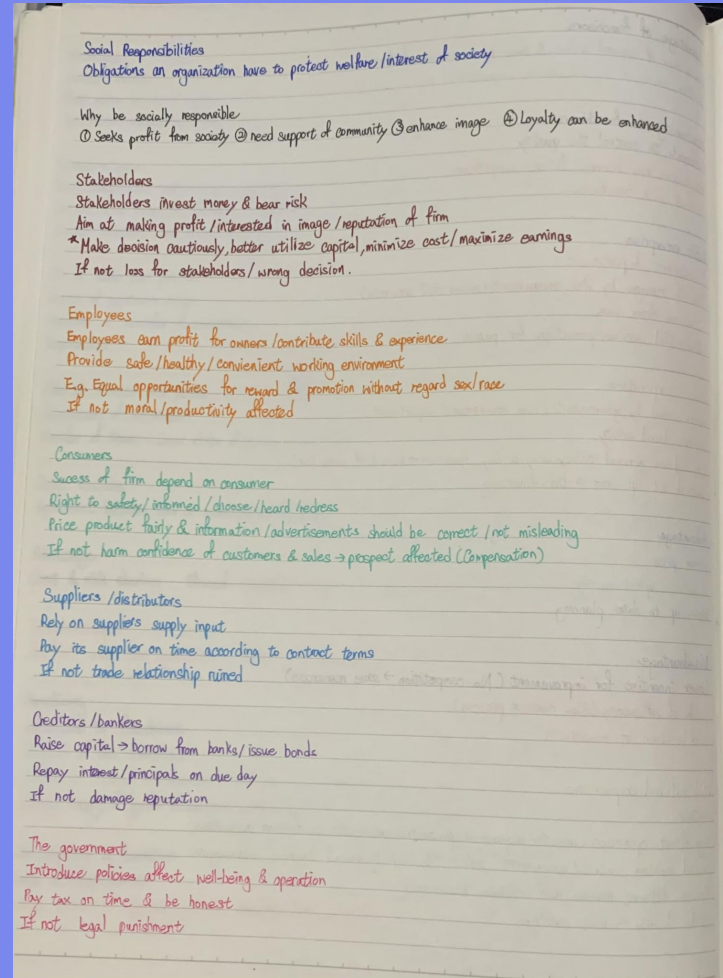 Social Responsibilities
Obligations an organization have to protect welfare/interest of society
Why be socially responsible
① Seeks profit from society ② need support of community ③ enhance image ④ Loyalty can be enhanced
Stakeholders
Stakeholders invest money & bear risk
Aim at making profit/interested in image/reputation of firm
*Make decision cautiously, better utilize capital, minimize cost/maximize earnings
If not loss for stakeholders/wrong decision.
Employees
Employees earn profit for owners/contribute skills & experience
Provide safe/healthy/convienient working environment
E.g. Equal opportunities for reward & promotion without regard sex/race
If not moral/productivity affected
Consumers
Sucess of firm depend on consumer
Right to safety/informed/choose/heard/redress
Price product fairly & information/advertisements should be correct/not misleading
If not harm confidence of customers & sales → prospect affected (Compensation)
Suppliers/distributors
Rely on suppliers supply input
Pay its supplier on time according to contract terms
If not trade relationship ruined
Creditors/bankers
Raise capital → borrow from banks/issue bonds
Repay interest/principals on due day
If not damage reputation
The government
Introduce policies affect well-being & operation
Pay tax on time & be honest
If not legal punishment